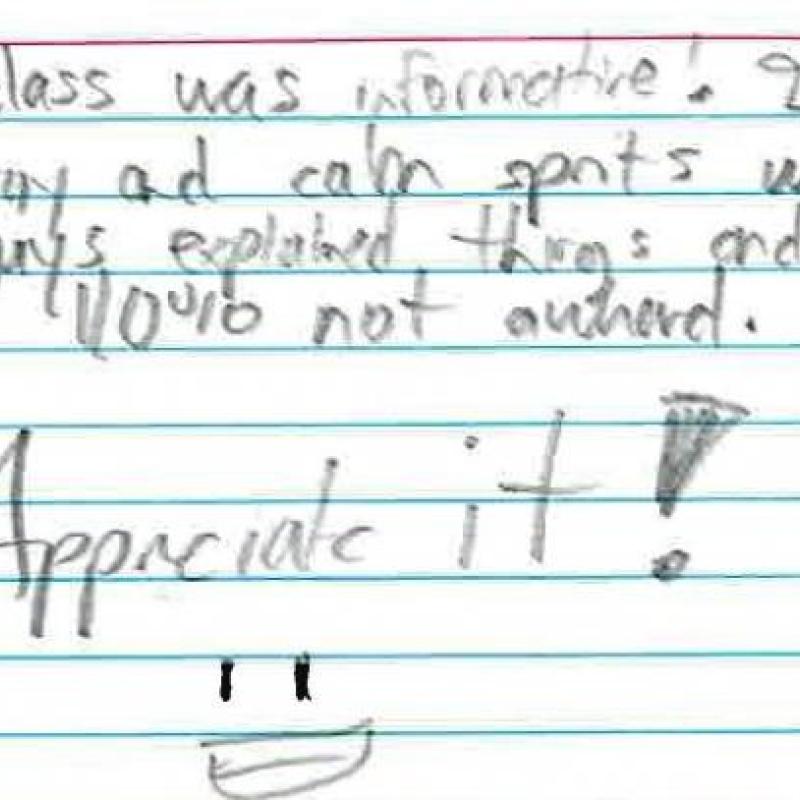 class was informative! I
ad calm sports
guys explained things and
not awkward.
Appreciate it!